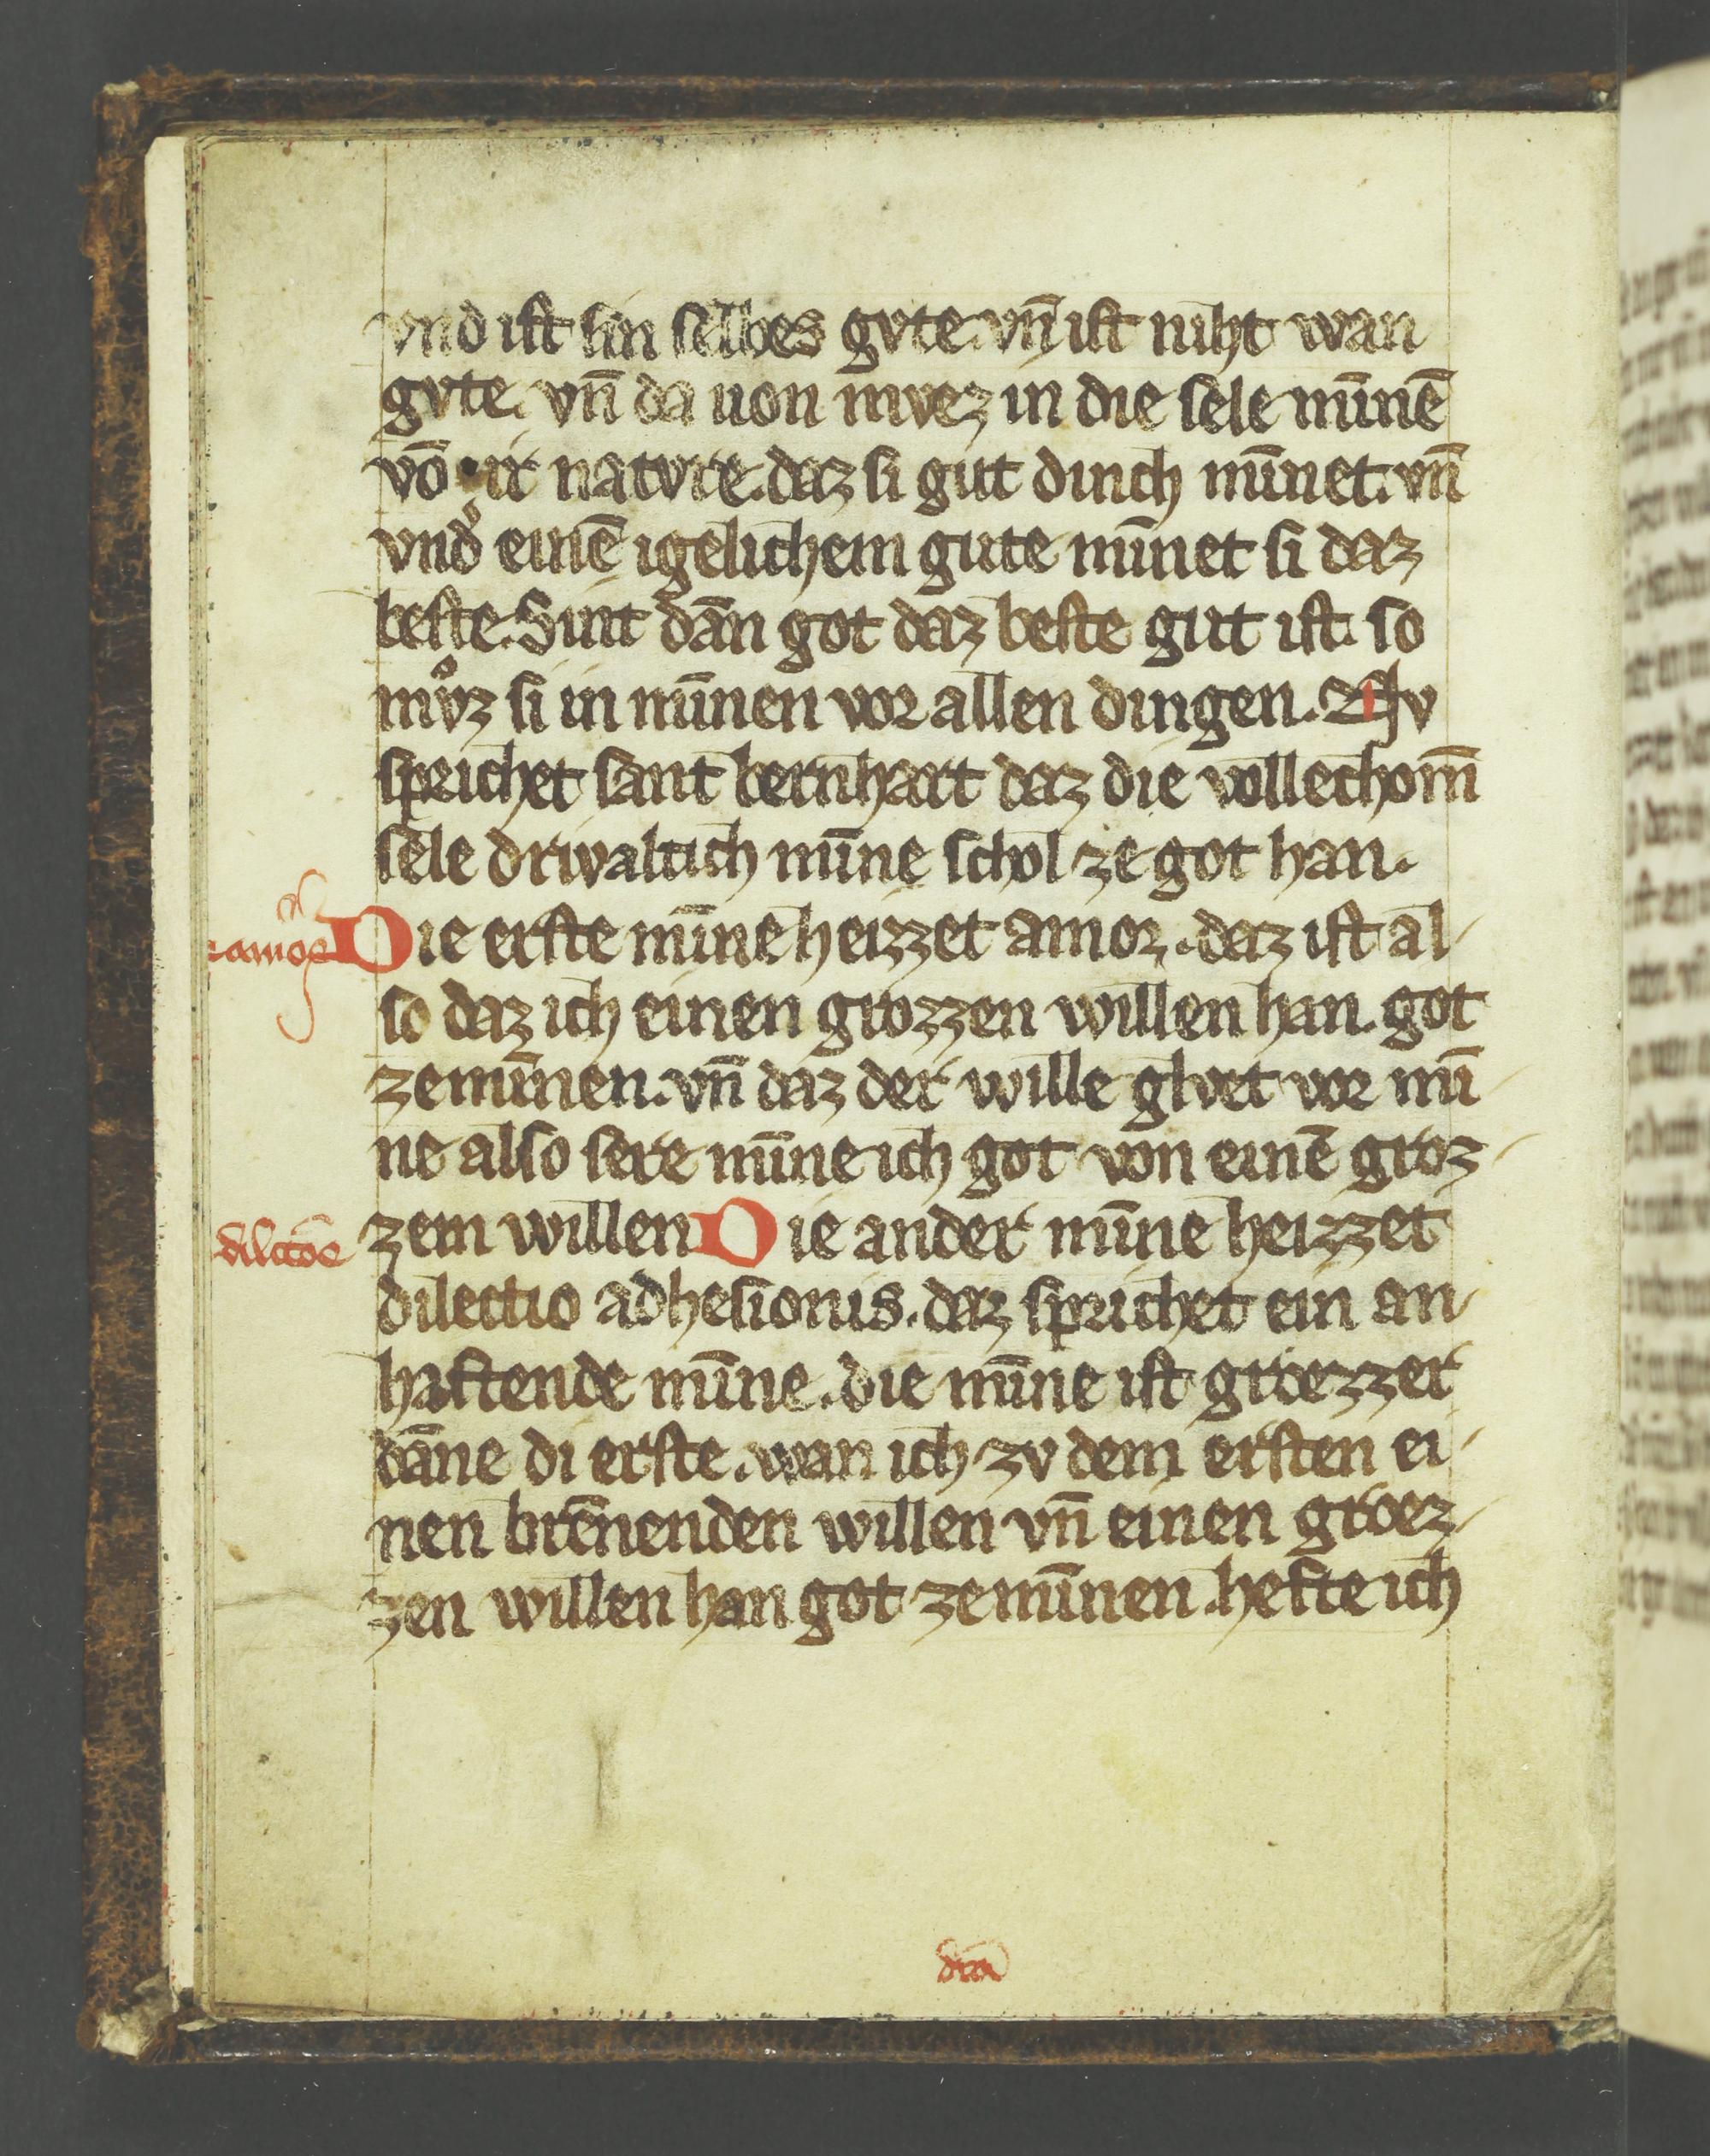 vnd ist sin selbes gvte. vn̄ ist niht wan
gvte. vn̄ da uon mvez in die sele mīnē
vō ir natvre. daz si gut durch mīnet. vn̄
vnd̾ einē igelichem gute mīnet si daz
beste. Sint dān got daz beste gut ist. so
mvͦz si in mīnen vor allen dingen. Nv
sprichet sant bernhart daz die vollechom̄
sele drivaltich mīne schol ze got han.
amor
Die erste mīne heizzet amor. daz ist al
so daz ich einen grozzen willen han. got
zemīnen. vn̄ daz der wille glvet vor mī
ne also sere mīne ich got von einē groz
zem willen Die ander mīne heizzet
dilectio adhesionis. daz sprichet ein an
haftende mīne. die mīne ist groezzer
dāne di erste. wan ich zv dem ersten ei
nen brēnenden willen vn̄ einen groez
zen willen han got zemīnen. hefte ich